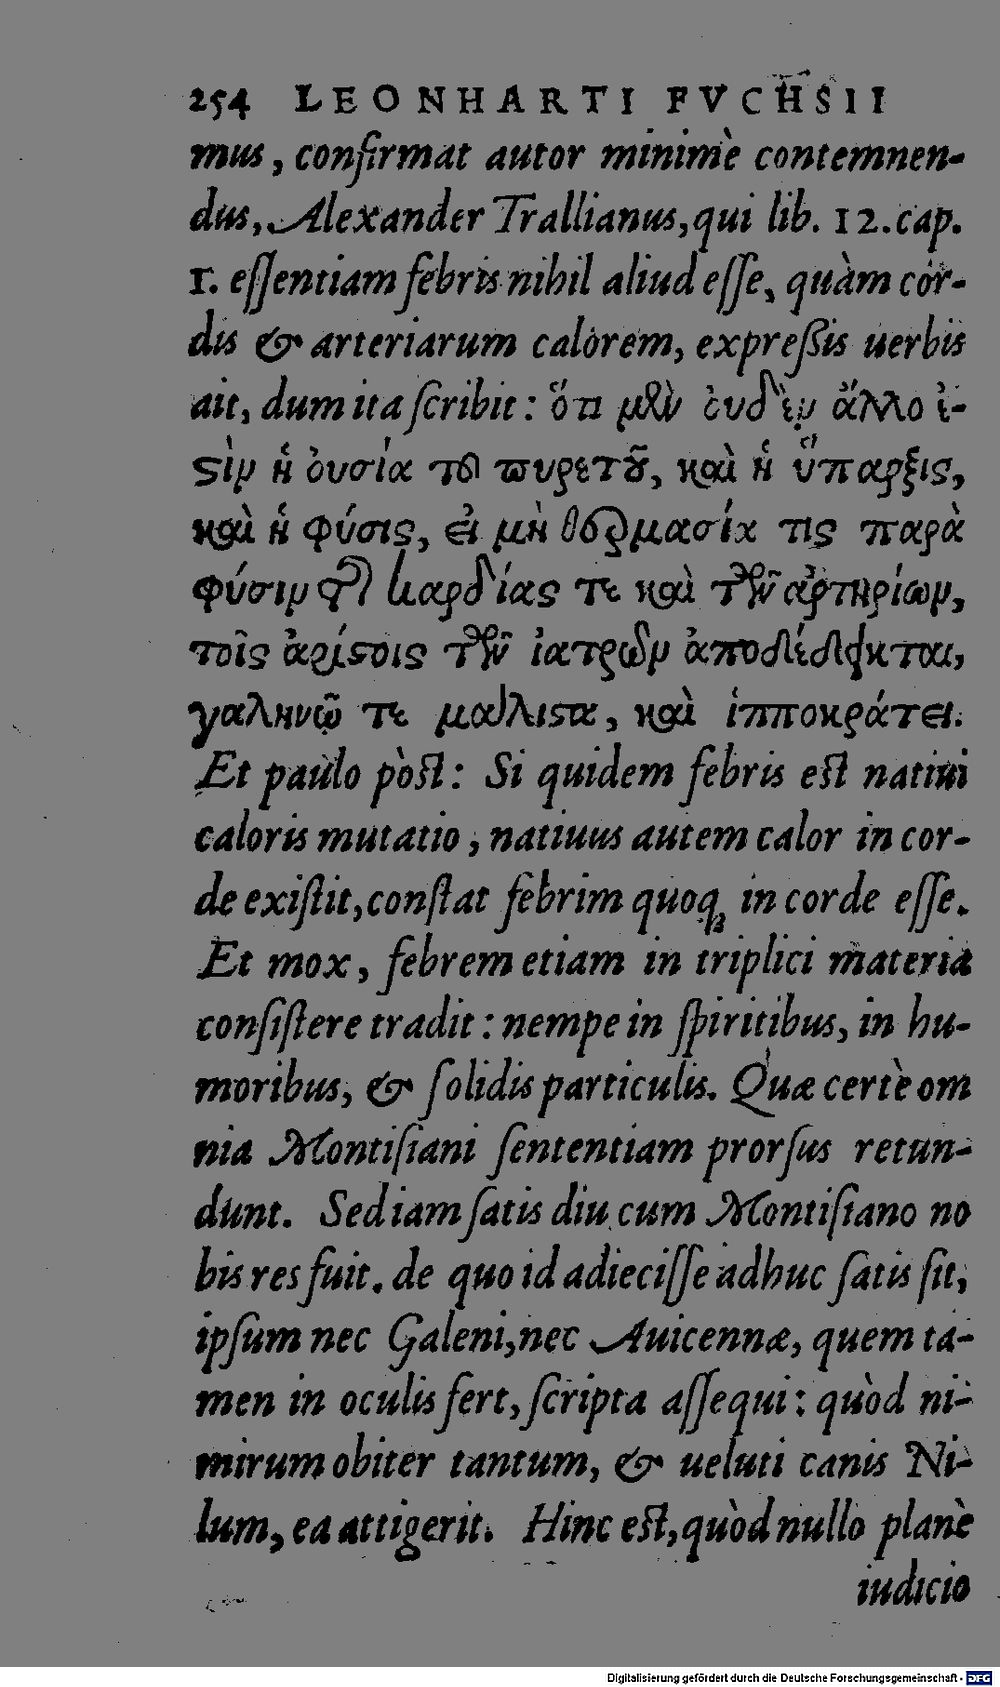 254 LEONHARTI FVCHSII
mus, confirmat autor minimè contemnen-
dus, Alexander Trallianus, qui lib. 12. cap.
1. eſſentiam febris nihil aliud eſſe, quàm cor-
dis & arteriarum calorem, expreßis uerbis
ait, dum ita ſcribit: ὅτι μὲν ὀυδὲν ἄλλο ἐ-
ϛὶν ἡ ὀυσία τοῦ πυρετοῦ, καὶ ἡ ὕπαρξις,
καὶ ἡ φύσις, εἰ μὴ θερμασία τις παρὰ
φύσιν τῆς καρδίας τε καὶ τῶν ἀρτηρίων,
τοῖς ἀρίϛοις τῶν ἰατρῶν ἀποδέδεικται,
γαληνῷ τε μάλιϛα, καὶ ἱπποκράτει.
Et paulo pòst: Si quidem febris est natiui
caloris mutatio, natiuus autem calor in cor-
de exiſtit, conſtat febrim quoq; in corde eſſe.
Et mox, febrem etiam in triplici materia
conſiſtere tradit: nempe in ſpiritibus, in hu-
moribus, & ſolidis particulis. Quæ certè om
nia Montiſiani ſententiam prorſus retun-
dunt. Sed iam ſatis diu cum Montiſiano no
bis res fuit. de quo id adieciſſe adhuc ſatis ſit,
ipſum nec Galeni, nec Auicennæ, quem ta-
men in oculis fert, ſcripta aſſequi: quòd ni-
mirum obiter tantum, & ueluti canis Ni-
lum, ea attigerit. Hinc est, quòd nullo planè
iudicio
Digitalisierung gefördert durch die Deutsche Forschungsgemeinschaft - DFG